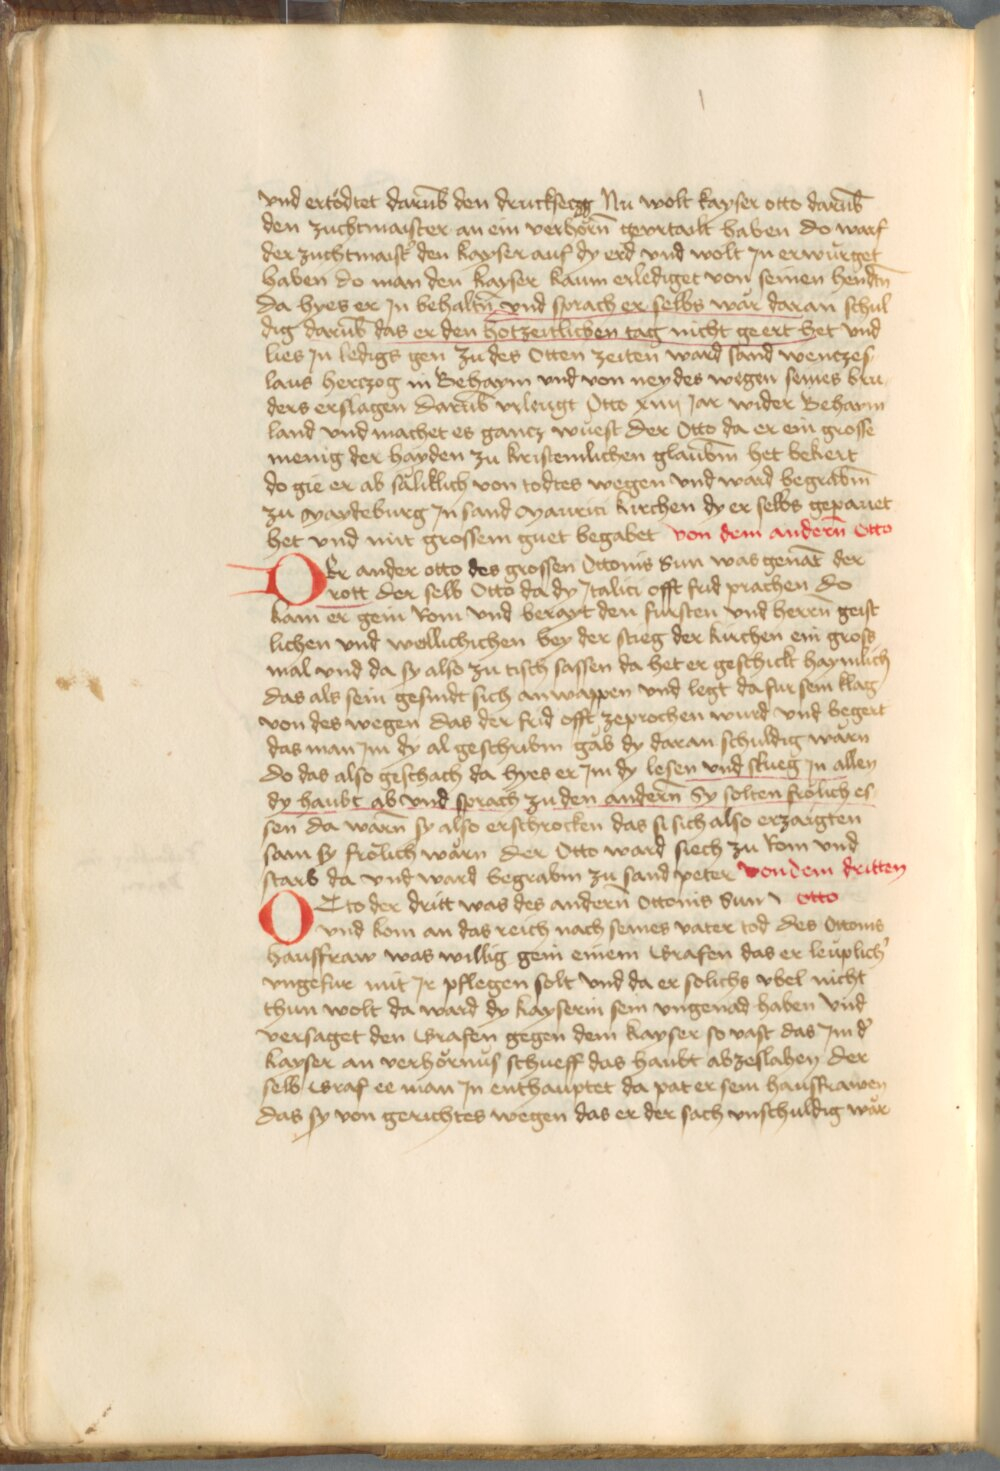 vnd ertödtet darūb den drucksecz Nu wolt kayser otto darūb
den zuchtmaister an ein verhörn̄ gevrtailt haben do warf
der zuchtmaist̓ den kayser auf dy erd vnd wolt Jn erwürget
haben do man den kayser kaum erlediget von seinen hendn̄
da hyes er Jn behaltn̄ vnd sprach er selbs wär daran schul
dig darūb das er den hotzeitlichen tag nicht geert het vnd
lies Jn ledigs gen zu des Otten zeiten ward sand wentzes
laus herczog in Behaym vnd von neydes wegen seines bru
ders erslagen darūb vrleugt Otto xiiij Jar wider Behaym
land vnd machet es gancz wuest Der Otto da er ein grosse
menig der hayden zu kristenlichen glaubm̄ het bekert
do gie er ab säliklich von todtes wegen vnd ward begrabm̄
zu Maydeburg Jn sand Maurici kirchen dy er selbs gepauet
het vnd mit grossem guet begabet von dem andern̄ Otto
Der ander otto des grossen Ottonis Sun was genāt der
rott der selb Otto da dy Jtalici offt frid prachen do
kam er gein Rom vnd berayt den fursten vnd herrn̄ geist
lichen vnd weltlichichen bey der stieg der kirchen ein gross
mal vnd da sy also zu tisch sassen da het er geschickt haymlich
das als sein gesindt sich anwappen vnd legt da fur sein klag
von des wegen das der frid offt zeprochen wurd vnd begert
das man Jm dy al geschribm gäb dy daran schuldig wärn
do das also geschach da hyes er Jm dy lesen vnd slueg Jn allen
dy haubt ab vnd sprach zu den andern̄ Sy solten frölich es
sen da warn̄ sy also erschrocken das si sich also erzaigten
sam sy frölich wärn Der Otto ward siech zu Rom vnd
starb da vnd ward begrabm zu sand peter von dem dritten
Otto der dritt was des andern̄ Ottonis Sun otto
vnd kom an das reich nach seines vater tod des Ottonis
hausfraw was willig gein einem Grafen das er leuplich̓
vngefur mit Jr pflegen solt vnd da er solichs vbel nicht
thun wolt da ward dy kayserin sein vngenad haben vnd
versaget den Grafen gegen dem kayser so vast das Jm d̓
kayser an verhörnüs schueff das haubt abzeslahen Der
selb Graf ee man Jn enthauptet da pat er sein hausfrawen
das sy von gerichtes wegen das er der sach vnschuldig wär